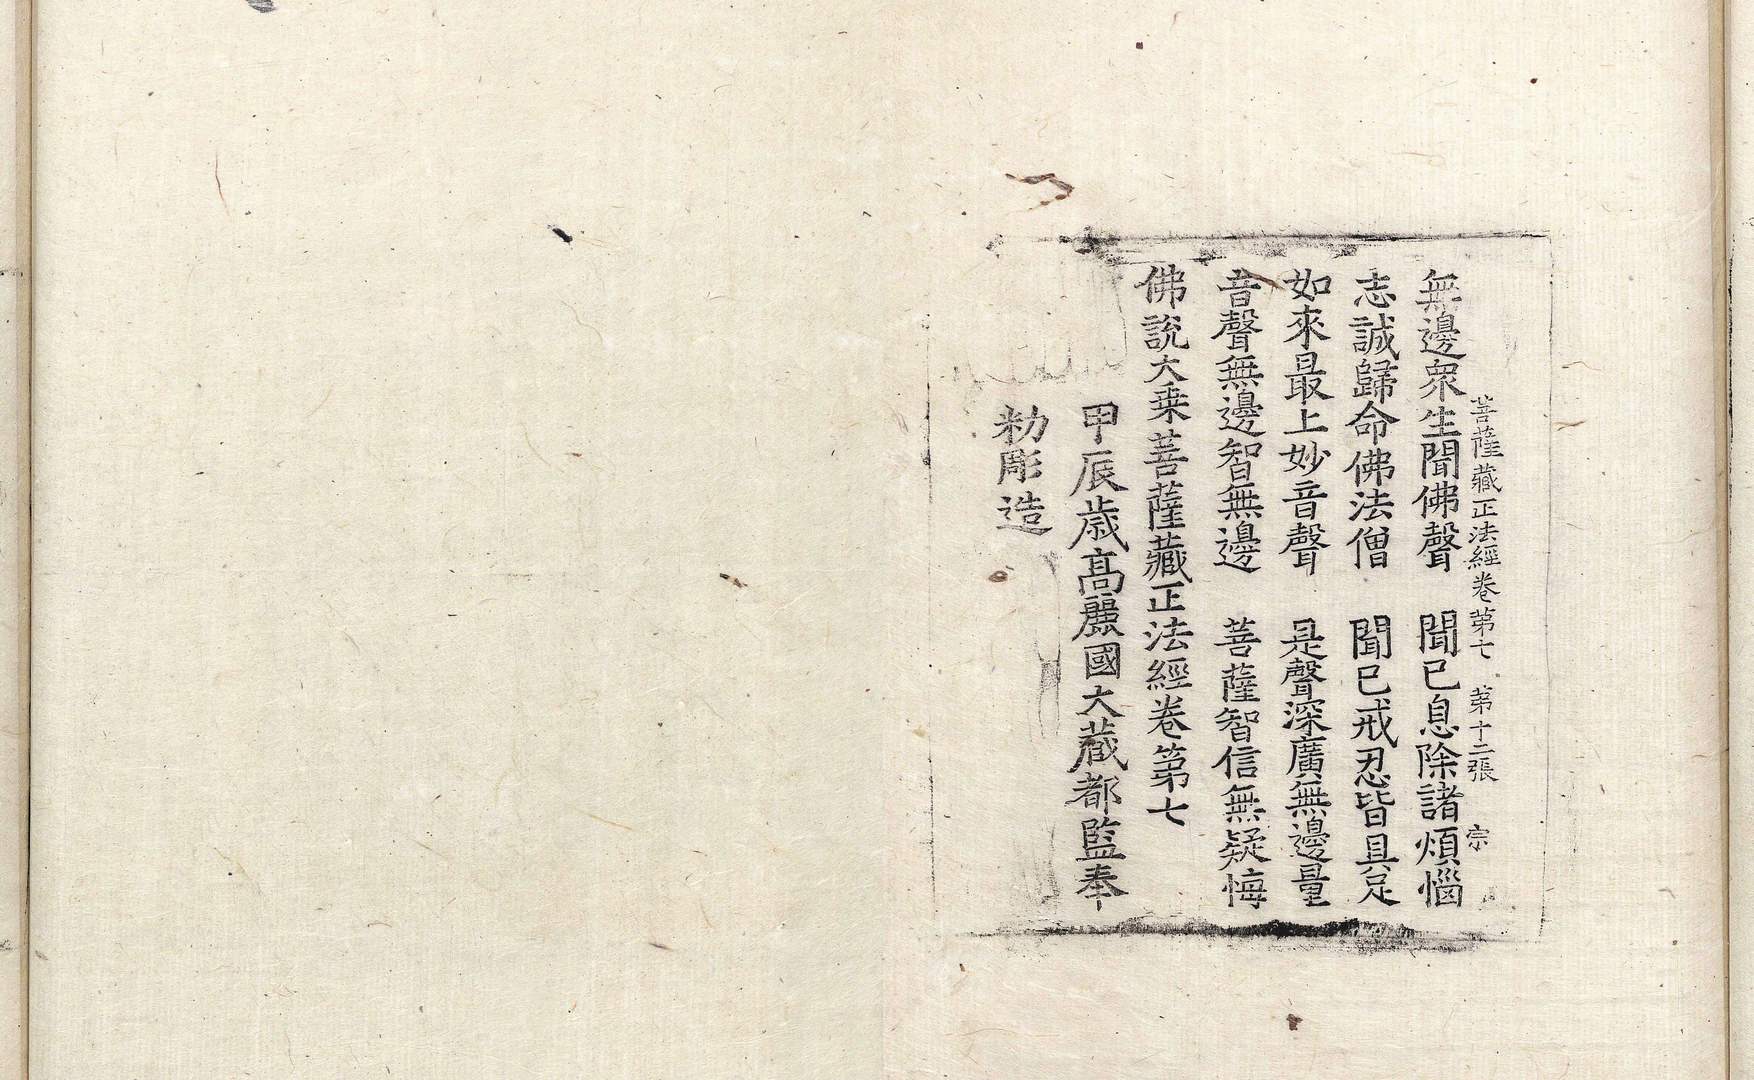 菩薩藏正法經卷第七 第十二張 宗
無邊衆生聞佛聲 聞已息除諸煩惱
志誠歸命佛法僧 聞已戒忍皆具足
如來最上妙音聲 是聲深廣無邊量
音聲無邊智無邊 菩薩智信無疑悔
佛說大乘菩薩藏正法經卷第七
甲辰歲高麗國大藏都監奉
勑彫造